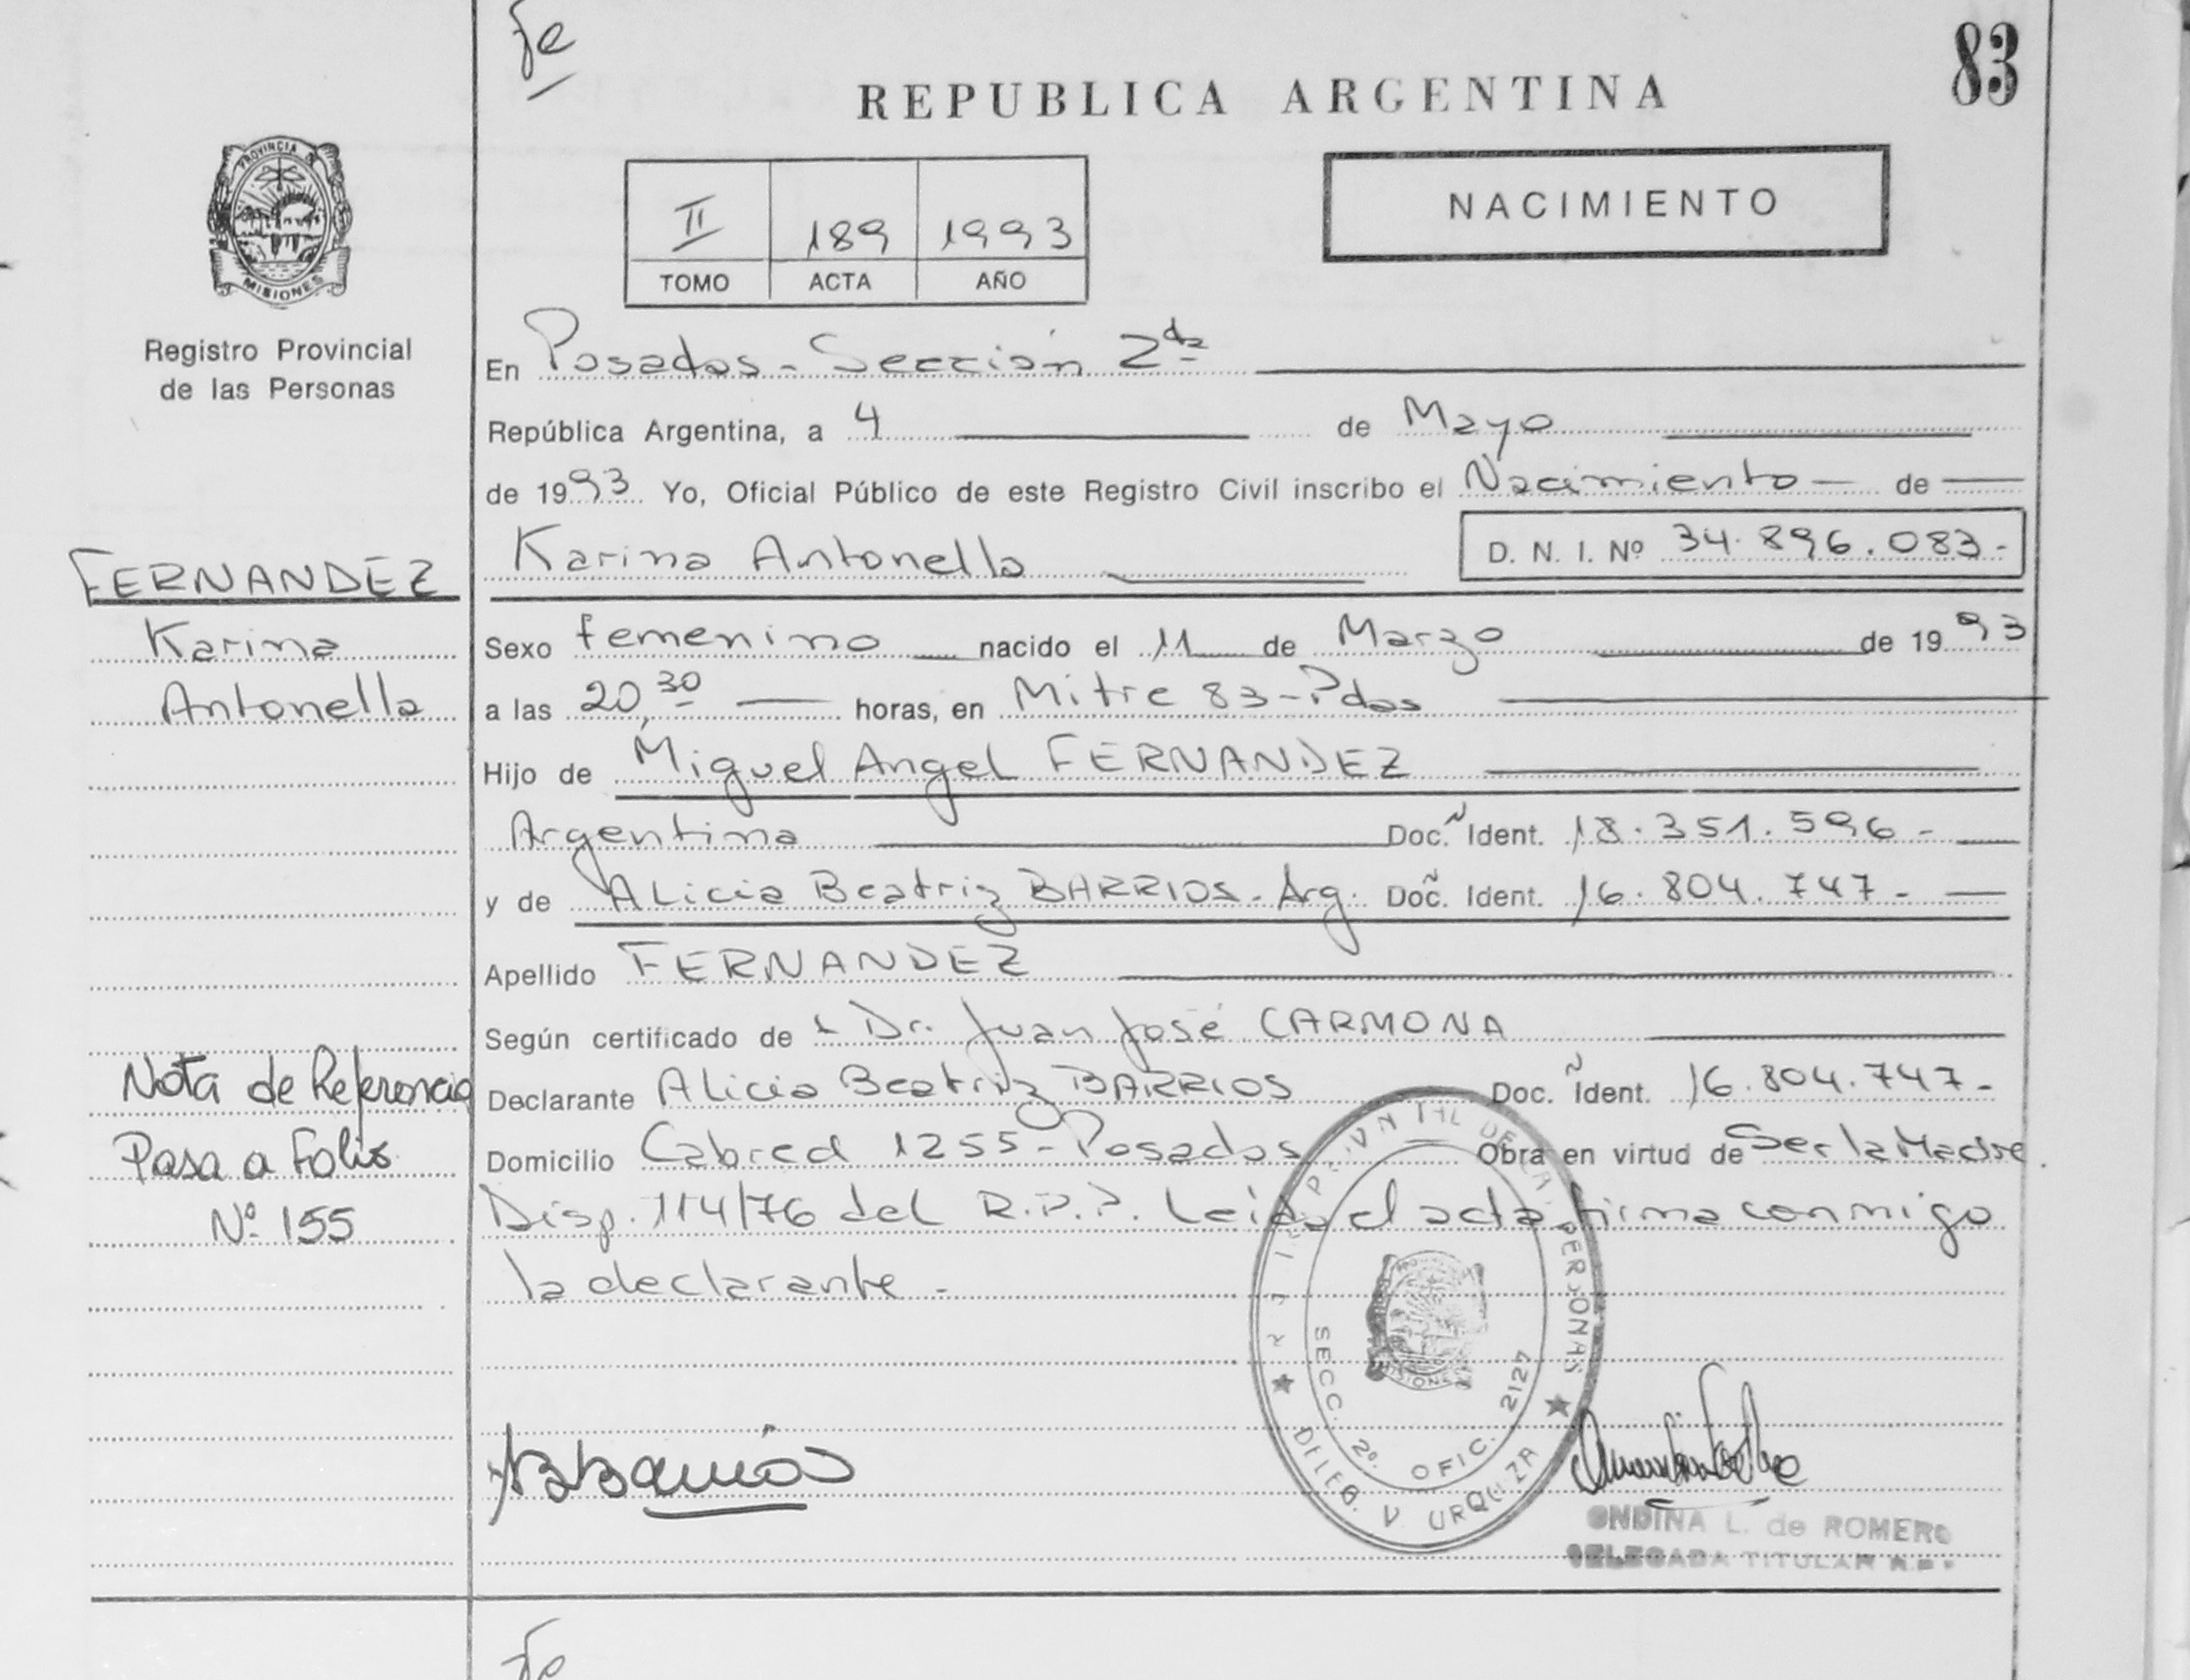 Fe
83
REPUBLICA ARGENTINA
PROVINCIA D
MISIONES
Registro Provincial
de las Personas
II 189 1993
TOMO ACTA AÑO
NACIMIENTO
En Posadas - Sección 2da
República Argentina, a 4 de Mayo
de 1993 Yo, Oficial Público de este Registro Civil inscribo el Nacimiento de
Karina Antonella D. N. I. Nº 34.896.083.-
FERNANDEZ
Karina
Antonella
Sexo femenino nacido el 11 de Marzo de 1993
a las 20,30 horas, en Mitre 83 - Pdas
Hijo de Miguel Angel FERNANDEZ
Argentina Doc. Ident. 18.351.596.-
y de Alicia Beatriz BARRIOS - Arg. Doc. Ident. 16.804.747.-
Apellido FERNANDEZ
Según certificado de Dr. Juan José CARMONA
Declarante Alicia Beatriz BARRIOS Doc. Ident. 16.804.747.-
Domicilio Cabred 1255 - Posadas Obra en virtud de Ser la Madre.
Disp. 114/76 del R.P.P. Leída el acta firma conmigo
la declarante.-
Nota de Referencia
Pasa a Folio
Nº 155
DE PERSONAS
SECC. 2º. OFIC. 2127
DELEG. V. URQUIZA
MISIONES
ABBarrios
ONDINA L. de ROMERO
DELEGADA TITULAR
Fe